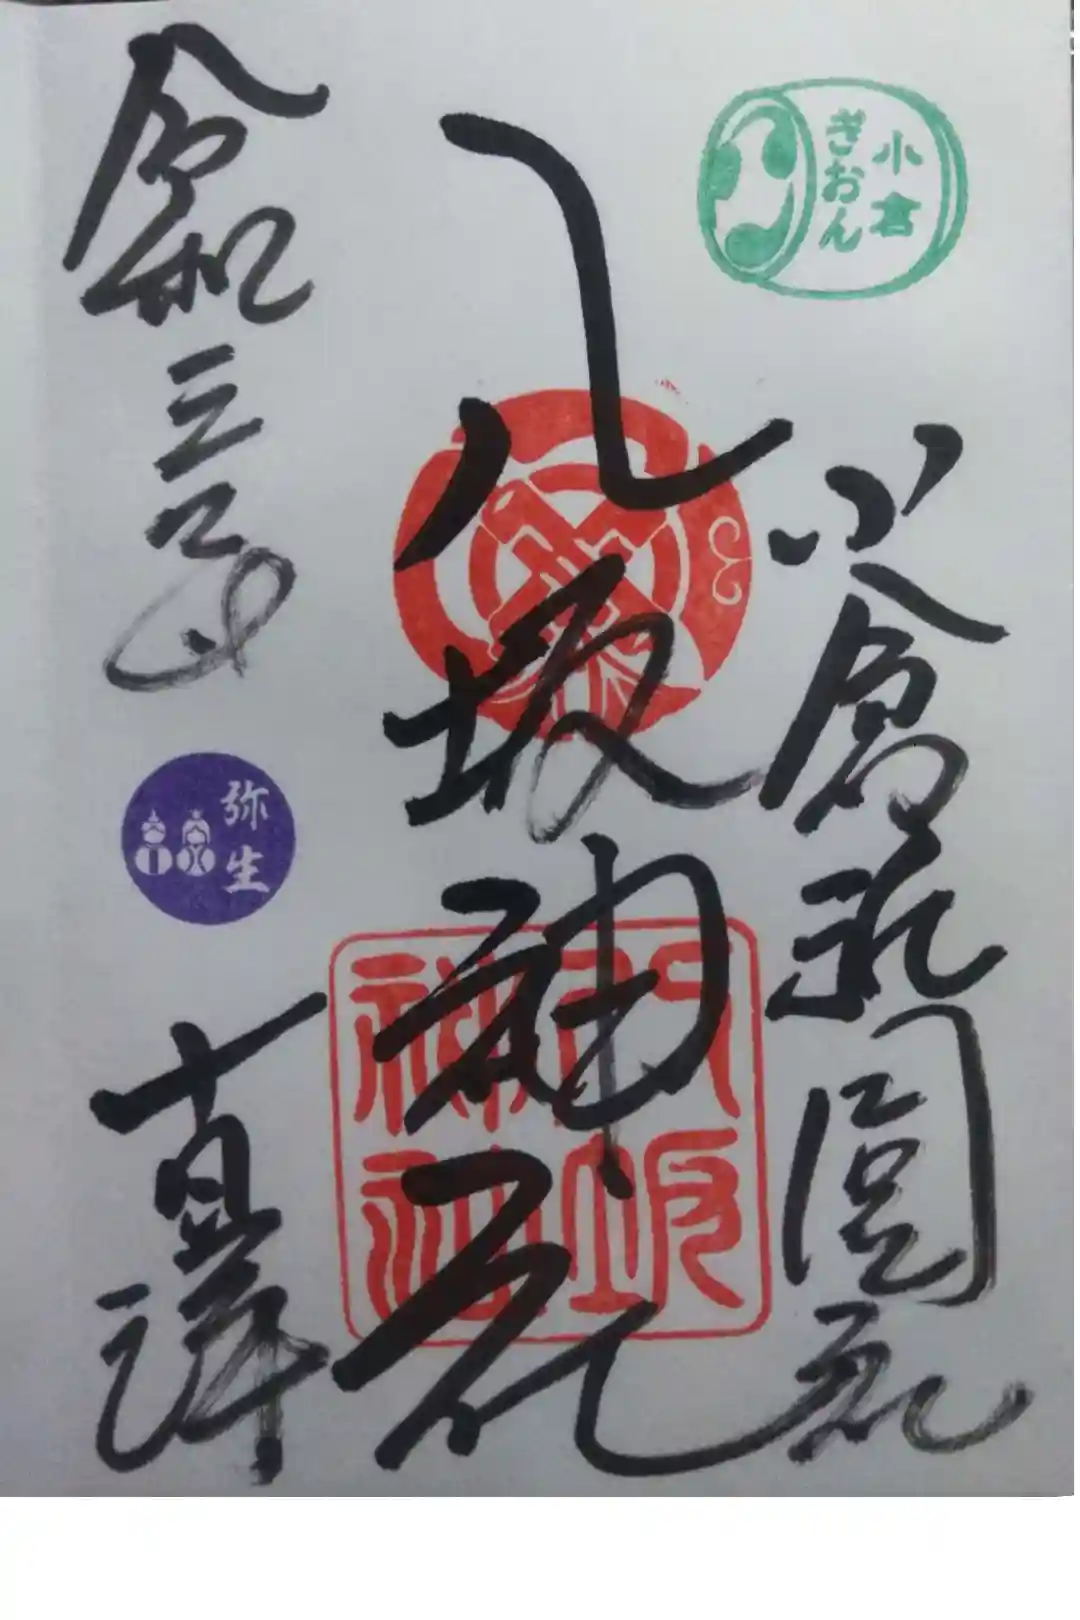 小倉
ぎおん
小倉祇園社
八坂神社
八坂
神社
令和三年
弥生